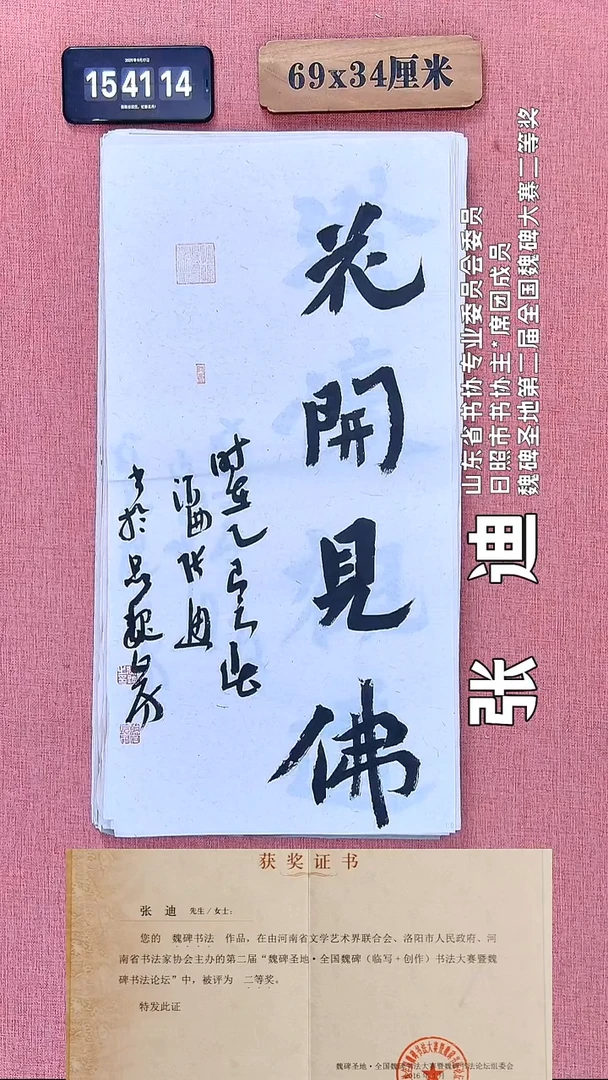 15 41 14
69x34厘米
山东省书协专业委员会委员
日照市书协主*席团成员
魏碑圣地第二届全国魏碑大赛二等奖
张 迪
花開見佛
时在乙巳之
张迪
获奖证书
张 迪 先生/女士：
您的 魏碑书法 作品，在由河南省文学艺术界联合会、洛阳市人民政府、河
南省书法家协会主办的第二届“魏碑圣地·全国魏碑（临写+创作）书法大赛暨魏
碑书法论坛”中，被评为 二等奖。
特发此证
魏碑圣地·全国魏碑书法大赛暨魏碑书法论坛组委会